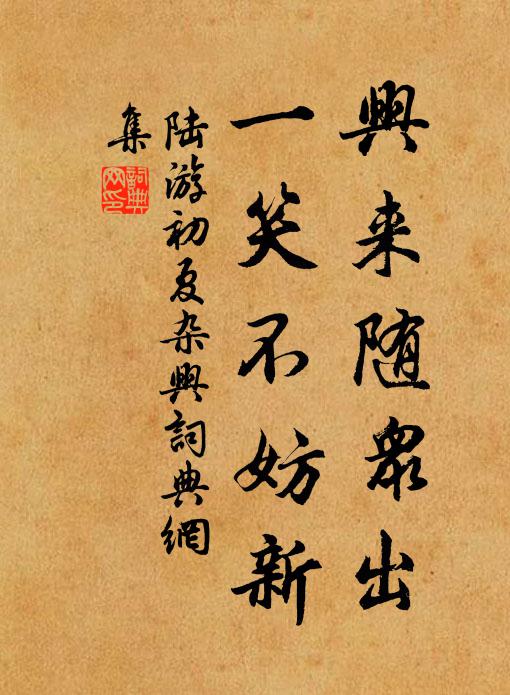 興来随眾出
一笑不妨新
陆游初夏杂興詞典網
集
詞典
网印